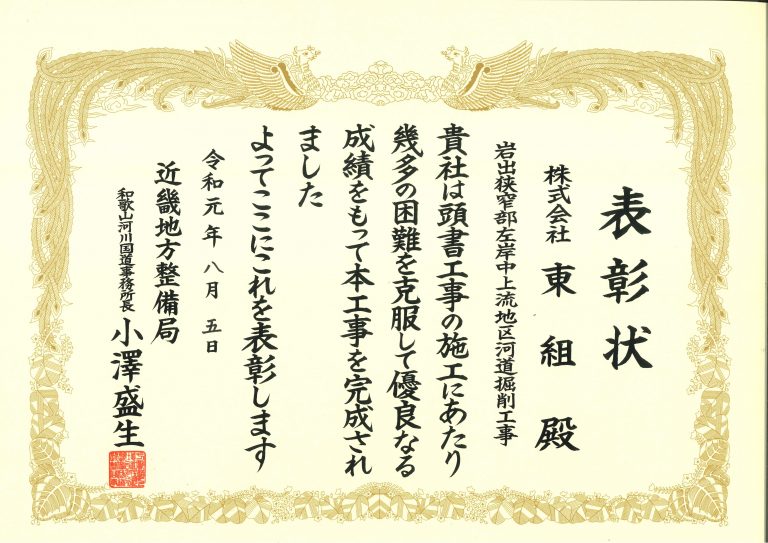 表彰状
株式会社 東組 殿
岩出狭窄部左岸中上流地区河道掘削工事
貴社は頭書工事の施工にあたり
幾多の困難を克服して優良なる
成績をもって本工事を完成され
ました
よってここにこれを表彰します
令和元年八月五日
近畿地方整備局
和歌山河川国道事務所長 小澤盛生